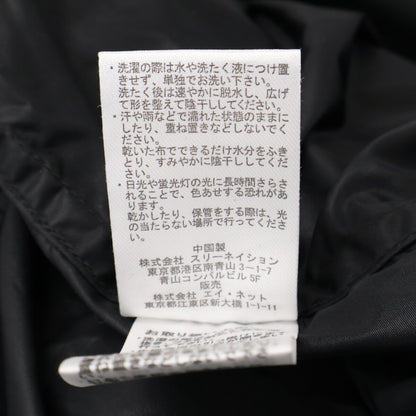 ・洗濯の際は水や洗たく液につけ置
きせず、単独でお洗い下さい。
洗たく後は速やかに脱水し、広げ
て形を整えて陰干ししてください。
・汗や雨などで濡れた状態のままに
したり、重ね置きなどしないでく
ださい。
乾いた布でできるだけ水分をふき
とり、すみやかに陰干ししてくだ
さい。
・日光や蛍光灯の光に長時間さらさ
れることで、色あせする恐れがあ
ります。
乾かしたり、保管をする際は、光
の当たらない場所で行ってくださ
い。
中国製
株式会社 スリーネイション
東京都港区南青山3-1-7
青山コンパルビル 5F
販売
株式会社 エイ・ネット
東京都江東区新大橋1-1-11
お取り扱